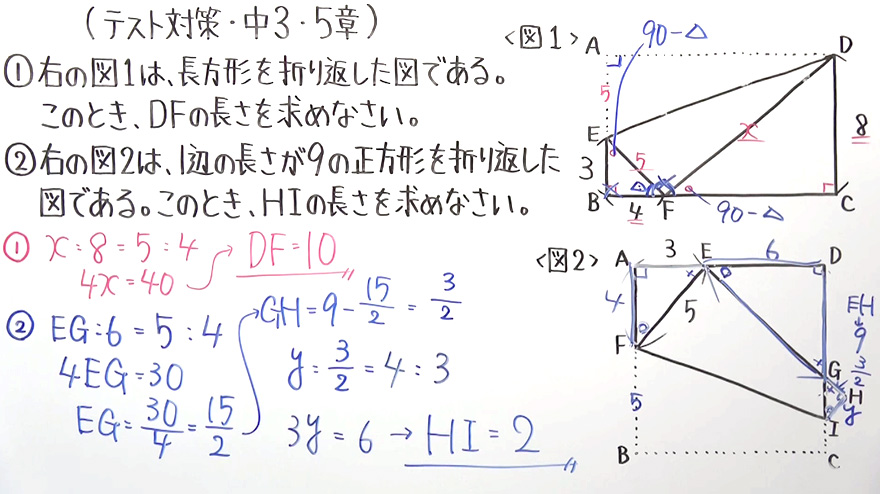 (テスト対策・中3・5章)
①右の図1は、長方形を折り返した図である。
このとき、DFの長さを求めなさい。
②右の図2は、1辺の長さが9の正方形を折り返した
図である。このとき、HIの長さを求めなさい。
① x:8=5:4
4x=40
DF=10
② EG:6=5:4
4EG=30
EG=30/4=15/2
GH=9-15/2=3/2
y:3/2=4:3
3y=6→HI=2
<図1>
90-△
A
D
5
E
x
8
3
5
△
B
4
F
90-△
C
<図2>
A
3
E
6
D
4
5
EH
9
F
G
3/2
H
y
5
I
B
C